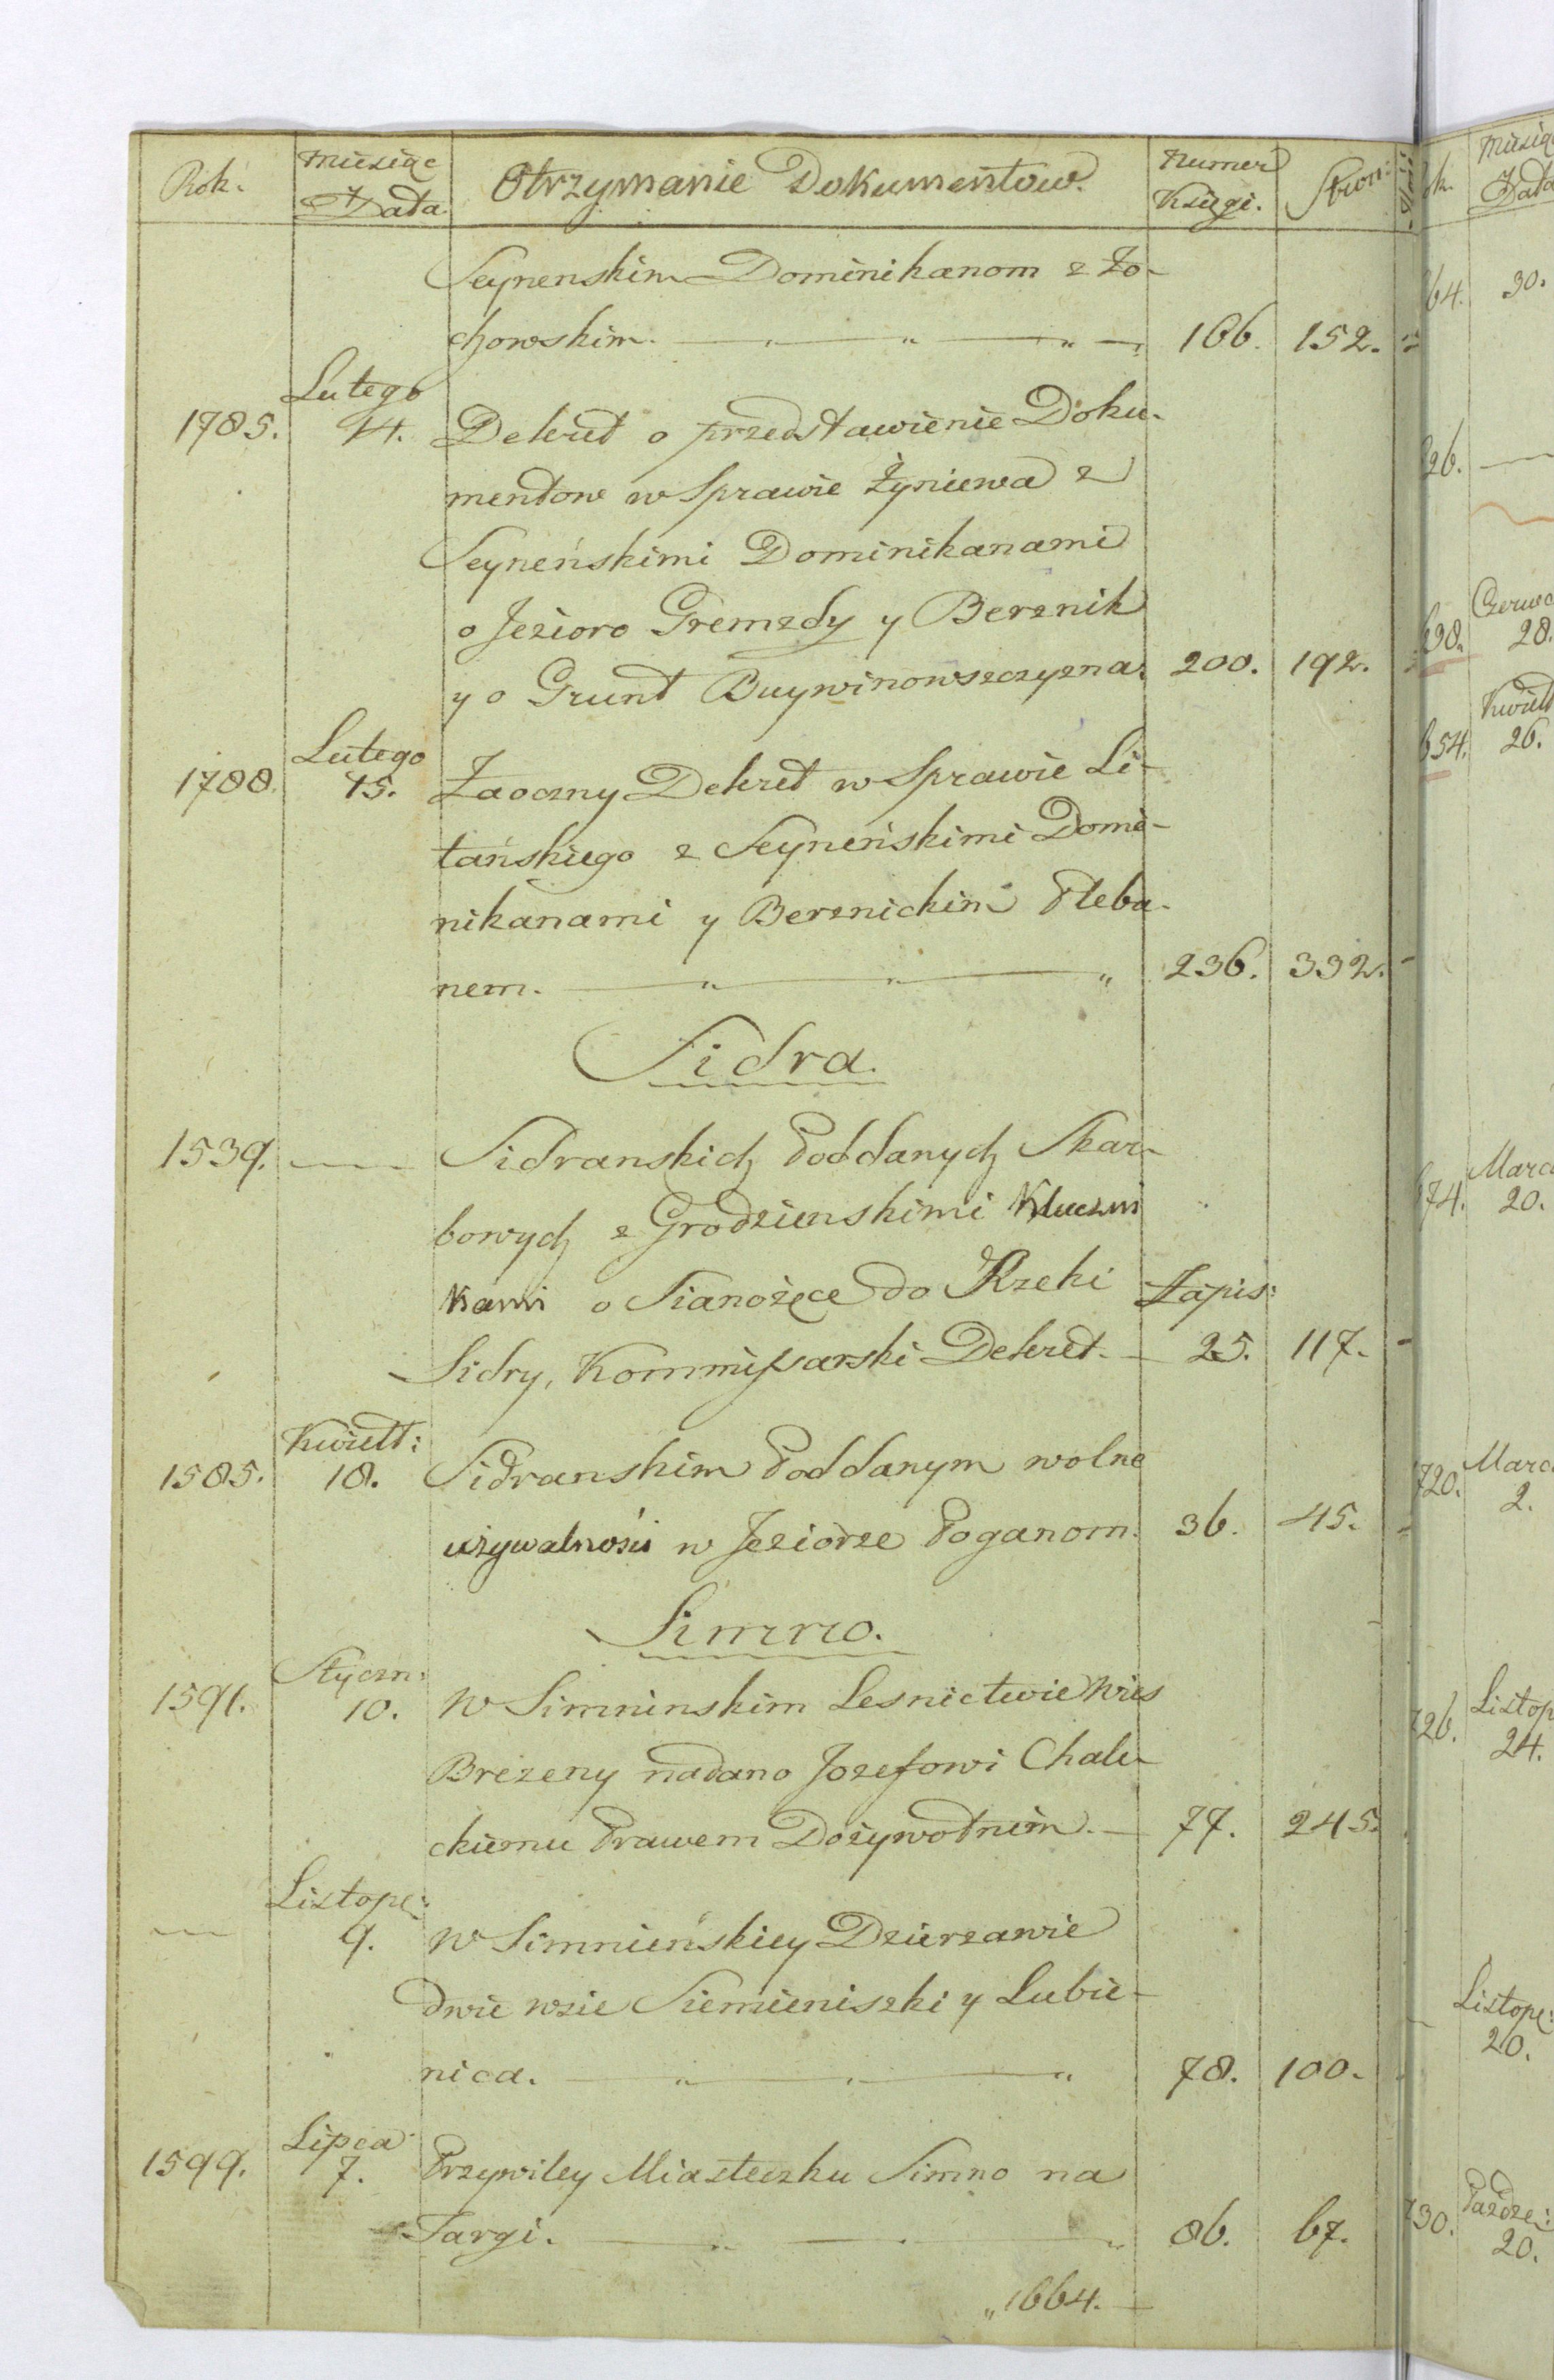 Rok. Miesiąc Data. Otrzymanie Dokumentow. Numer Księgi. Stron:
Seynenskim Dominikanom z Żo-
chowskim. 166. 152.
Lutego
1785. 14. Dekret o przedstawienie Doku-
mentow w Sprawie Żyniewa z
Seyneńskimi Dominikanami
o Jezioro Gremzdy y Berznik
y o Grunt Buywinowszczyzna. 200. 192.
Lutego
1788. 15. Zaoczny Dekret w Sprawie Li-
tańskiego z Seyneńskimi Domi-
nikanami y Berznickim Pleba-
nem. 236. 332.
Sidra.
1539. — Sidranskich Poddanych Skar-
bowych z Grodzienskimi Kluczni
kami o Sianożęce do Rzeki Zapis:
Sidry, Kommissarski Dekret. 25. 117.
Kwiet:
1585. 18. Sidranskim Poddanym wolne
używalności w Jeziorze Poganom. 36. 45.
Simno.
Styczn:
1591. 10. W Simninskim Lesnictwie Wies
Breżeny nadano Jozefowi Chale-
ckiemu Prawem Dożywotnim. 77. 245.
Listop:
— 9. W Simnieńskiey Dzierzawie
dwie wsie Siemieniszki y Lubie-
nica. 78. 100.
Lipca
1599. 7. Przywiley Miasteczku Simno na
Targi. 86. 67.
„1664.
Miesiąc
Data
64. 30.
26. —
Czerwc
28.
Kwiet
654. 26.
Marc
674. 20.
Marc
720. 2.
Listop
726. 24.
Listop:
20.
Paźdze:
730. 20.